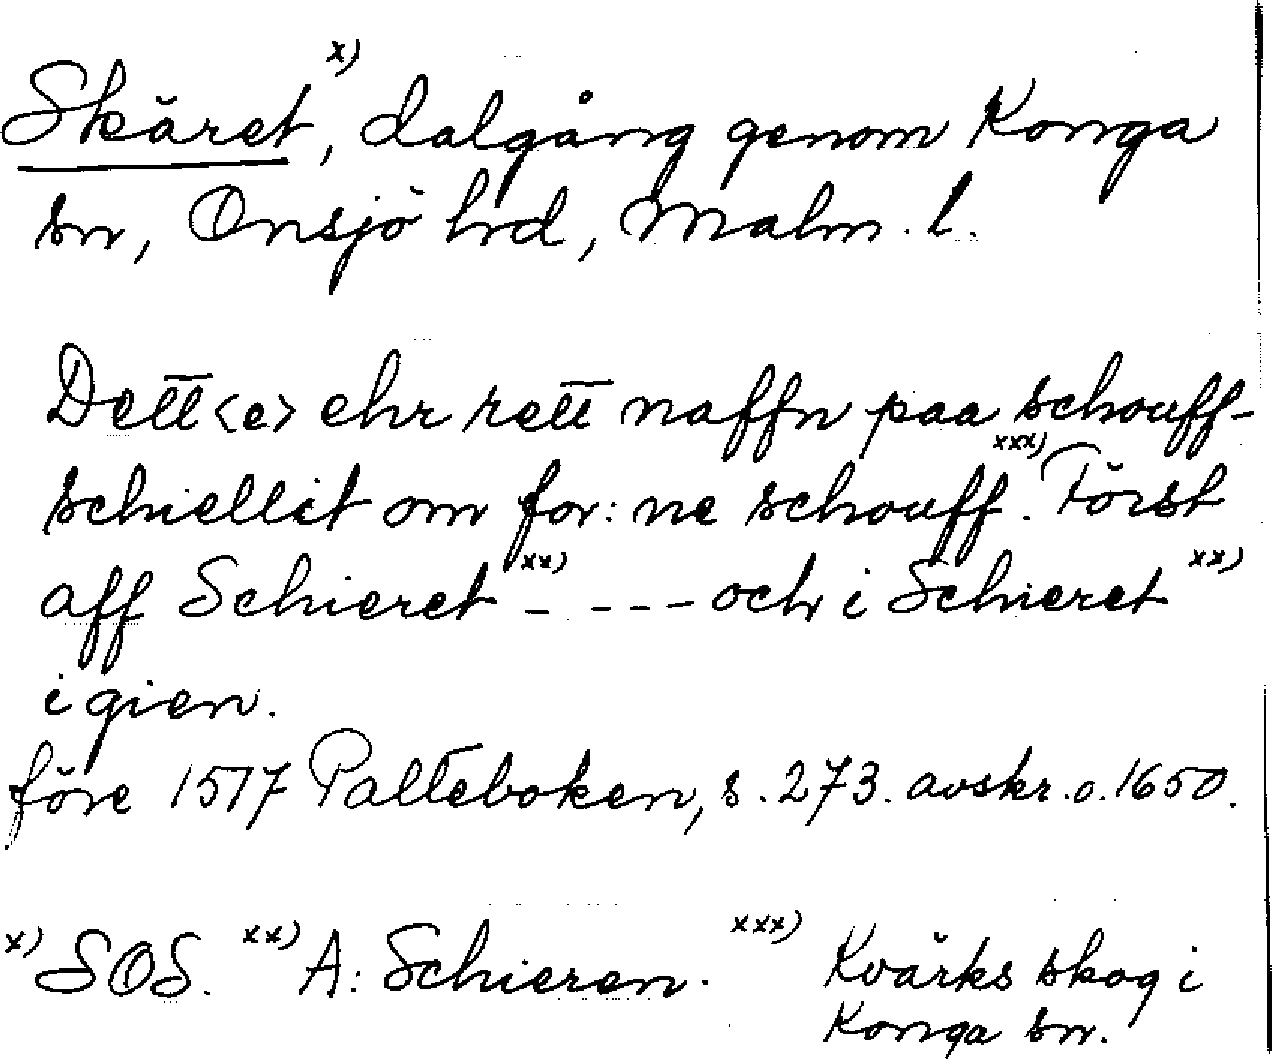 Skäret x), dalgång genom Konga
sn, Onsjö hrd, Malm. l.
Dett<e> ehr rett naffn paa schouff-
schiellit om for: ne schouff. xxx) Först
aff Schieret xx) - - - - och i Schieret xx)
i gien.
före 1517 Palteboken, s. 273. avskr. o. 1650.
x) SOS. xx) A: Schieren. xxx) Kvärks skog i
Konga sn.